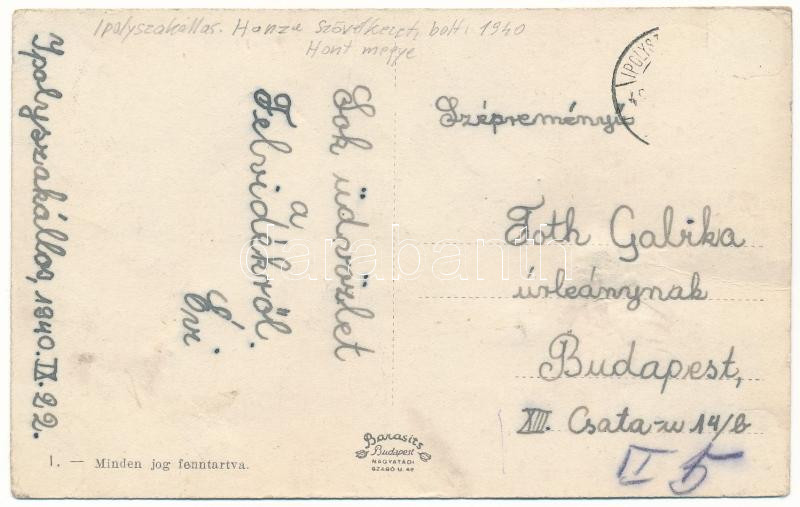 Ipolyszakállas. Hanza Szövetkezeti bolt. 1940
Hont megye
Ipolyszakállos, 1940. IX. 22.
Sok üdvözlet
a
Felvidékről.
Évi.
Szépreményű
Tóth Gabika
úrleánynak
Budapest,
XIII. Csata-u 14/b
VI 5
IPOLYSZ
Barasits
Budapest
NAGYATÁDI
SZABÓ U. 49
1. — Minden jog fenntartva.
darabanth